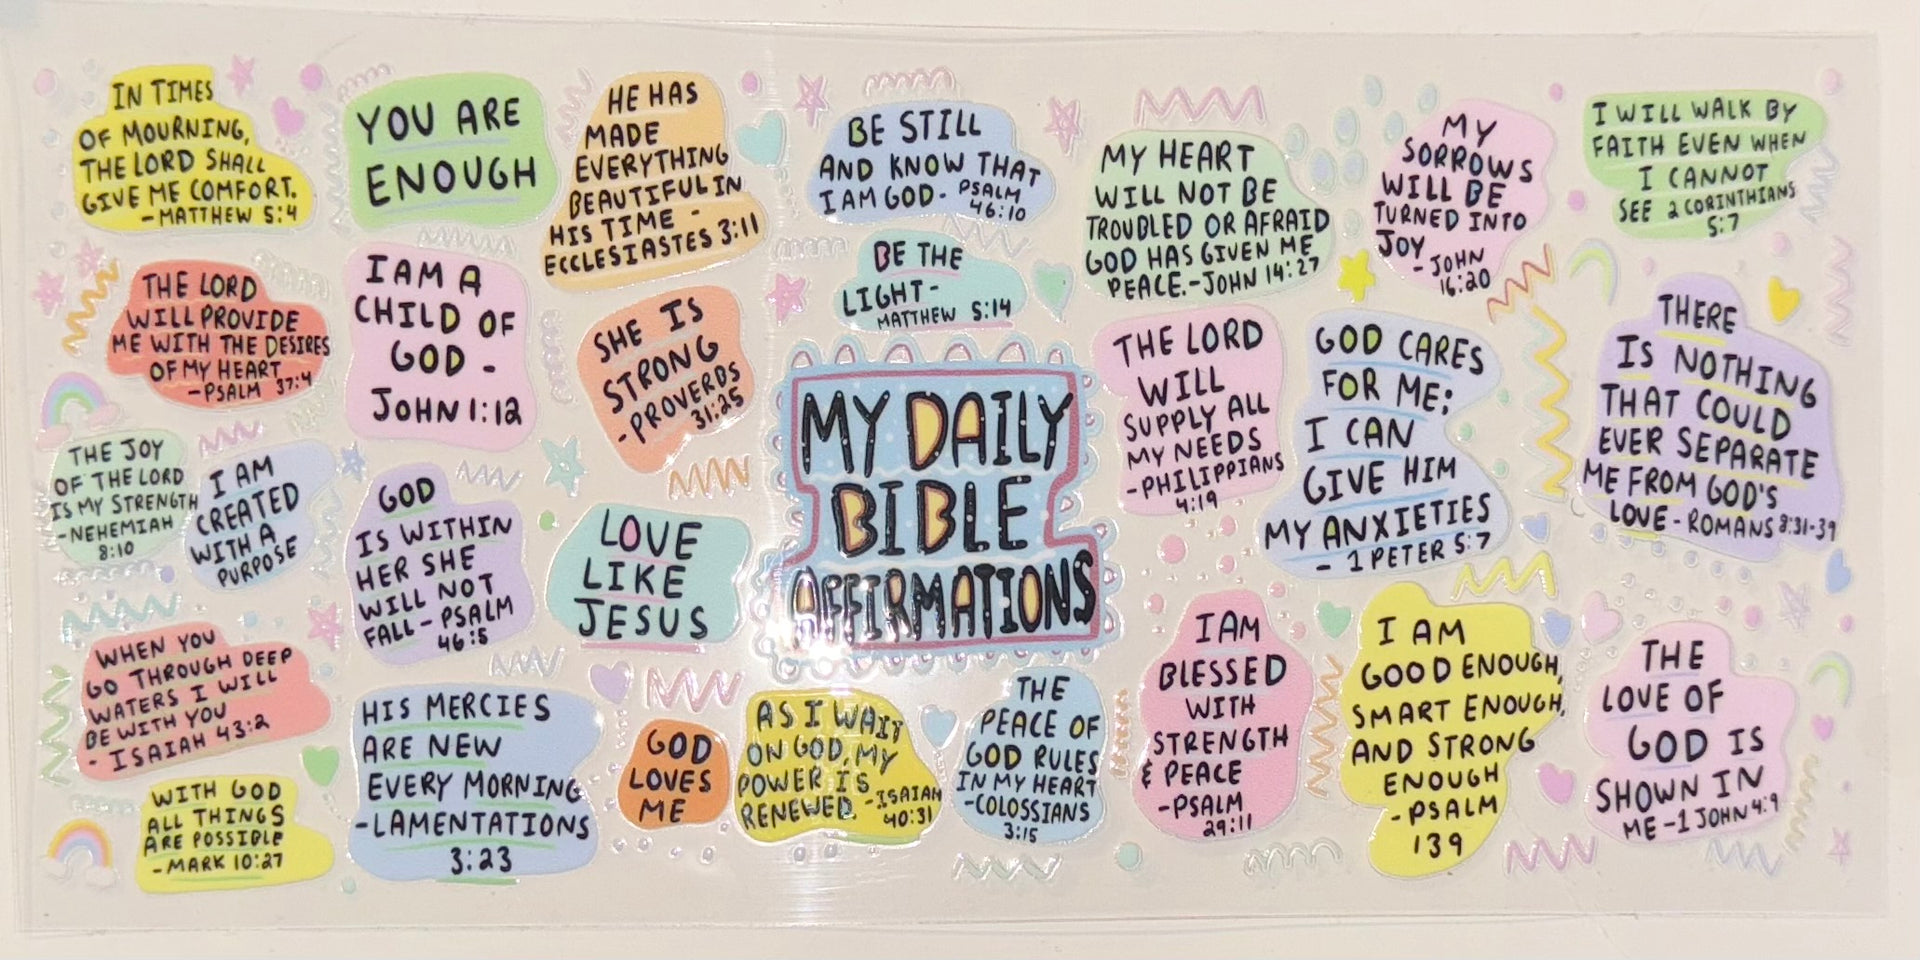 IN TIMES
OF MOURNING,
THE LORD SHALL
GIVE ME COMFORT.
-MATTHEW 5:4
YOU ARE
ENOUGH
HE HAS
MADE
EVERYTHING
BEAUTIFUL IN
HIS TIME -
ECCLESIASTES 3:11
BE STILL
AND KNOW THAT
I AM GOD- PSALM
46:10
MY HEART
WILL NOT BE
TROUBLED OR AFRAID
GOD HAS GIVEN ME
PEACE.-JOHN 14:27
MY
SORROWS
WILL BE
TURNED INTO
JOY
-JOHN
16:20
I WILL WALK BY
FAITH EVEN WHEN
I CANNOT
SEE 2 CORINTHIANS
5:7
THE LORD
WILL PROVIDE
ME WITH THE DESIRES
OF MY HEART
-PSALM 37:4
I AM A
CHILD OF
GOD -
JOHN 1:12
SHE IS
STRONG
-PROVERBS
31:25
BE THE
LIGHT-
MATTHEW 5:14
MY DAILY
BIBLE
AFFIRMATIONS
THE LORD
WILL
SUPPLY ALL
MY NEEDS
-PHILIPPIANS
4:19
GOD CARES
FOR ME;
I CAN
GIVE HIM
MY ANXIETIES
- 1 PETER 5:7
THERE
IS NOTHING
THAT COULD
EVER SEPARATE
ME FROM GOD'S
LOVE-ROMANS 8:31-39
THE JOY
OF THE LORD
IS MY STRENGTH
-NEHEMIAH
8:10
I AM
CREATED
WITH A
PURPOSE
GOD
IS WITHIN
HER SHE
WILL NOT
FALL-PSALM
46:5
LOVE
LIKE
JESUS
WHEN YOU
GO THROUGH DEEP
WATERS I WILL
BE WITH YOU
- ISAIAH 43:2
HIS MERCIES
ARE NEW
EVERY MORNING
-LAMENTATIONS
3:23
GOD
LOVES
ME
AS I WAIT
ON GOD, MY
POWER IS
RENEWED -ISAIAH
40:31
THE
PEACE OF
GOD RULES
IN MY HEART
-COLOSSIANS
3:15
I AM
BLESSED
WITH
STRENGTH
& PEACE
-PSALM
29:11
I AM
GOOD ENOUGH,
SMART ENOUGH,
AND STRONG
ENOUGH
-PSALM
139
THE
LOVE OF
GOD IS
SHOWN IN
ME-1 JOHN 4:9
WITH GOD
ALL THINGS
ARE POSSIBLE
-MARK 10:27